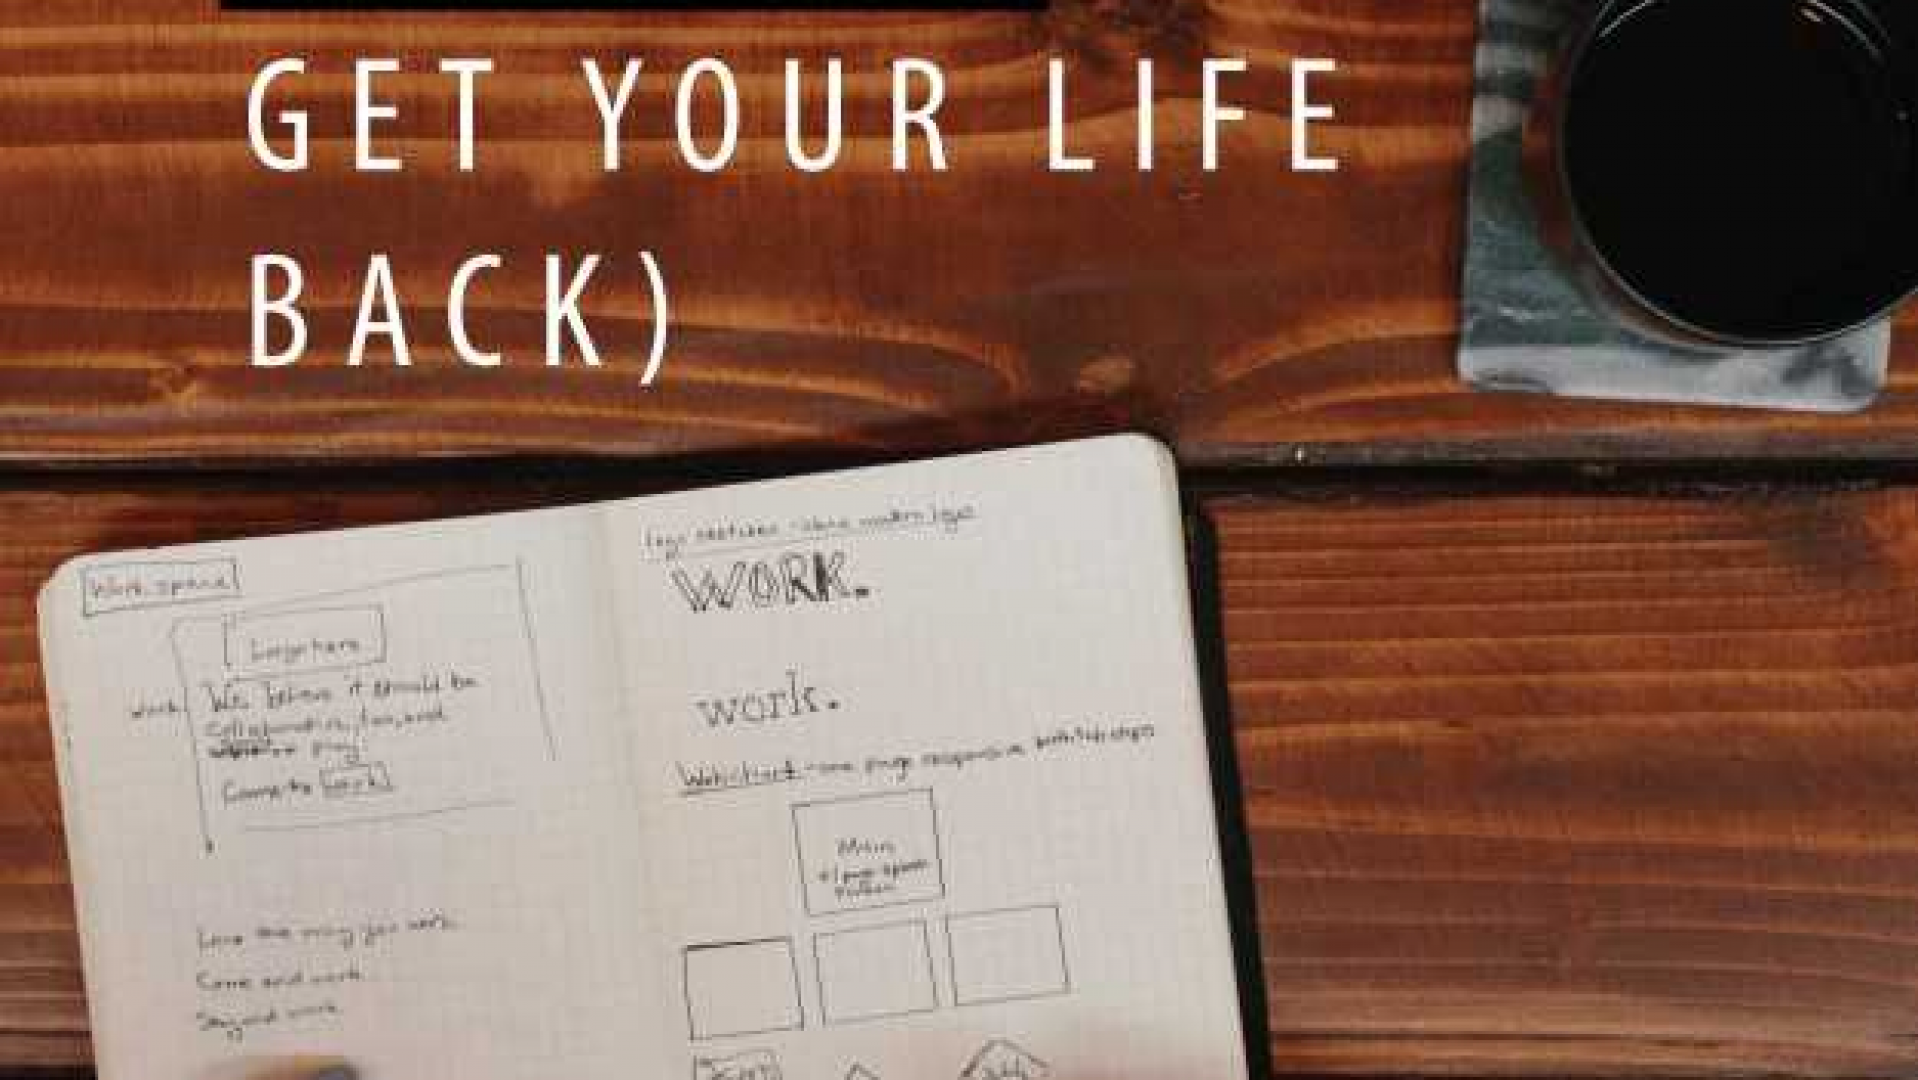 GET YOUR LIFE
BACK)
Work space
Logo here
work
We believe it should be
collaborative, fun, and
play
Come to work
Love the way you work.
Come and work
Stay and work
WORK.
work.
one page responsive
Main